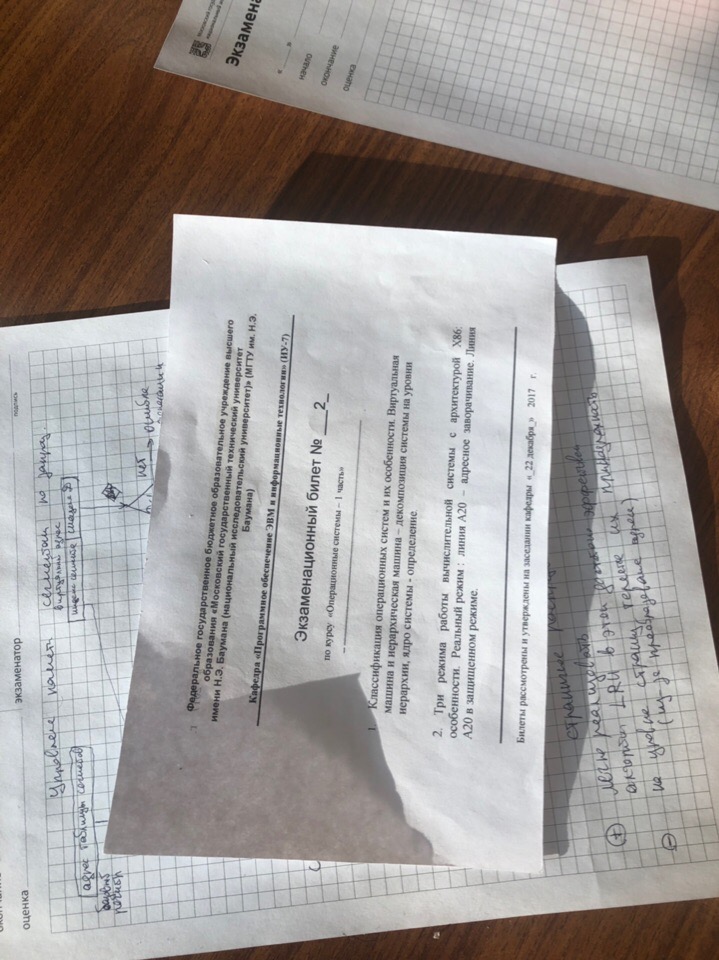 оценка
экзаменатор
подпись
сегментам по запрос.
виртуальный адрес
адрес таблицы сегментов
нет
ошибка
Федеральное государственное бюджетное образовательное учреждение высшего
образования «Московский государственный технический университет
имени Н.Э. Баумана (национальный исследовательский университет)» (МГТУ им. Н.Э.
Баумана)
Кафедра «Программное обеспечение ЭВМ и информационные технологии» (ИУ-7)
Экзаменационный билет № ___2_
по курсу «Операционные системы – 1 часть»
1. Классификация операционных систем и их особенности. Виртуальная
машина и иерархическая машина – декомпозиция системы на уровни
иерархии, ядро системы - определение.
2. Три режима работы вычислительной системы с архитектурой X86:
особенности. Реальный режим : линия А20 – адресное заворачивание. Линия
А20 в защищенном режиме.
Билеты рассмотрены и утверждены на заседании кафедры «_22 декабря_» 2017 г.
легко реализовать
алгоритм LRU в этой
на уровне страниц
Экзамена
начало
окончание
оценка